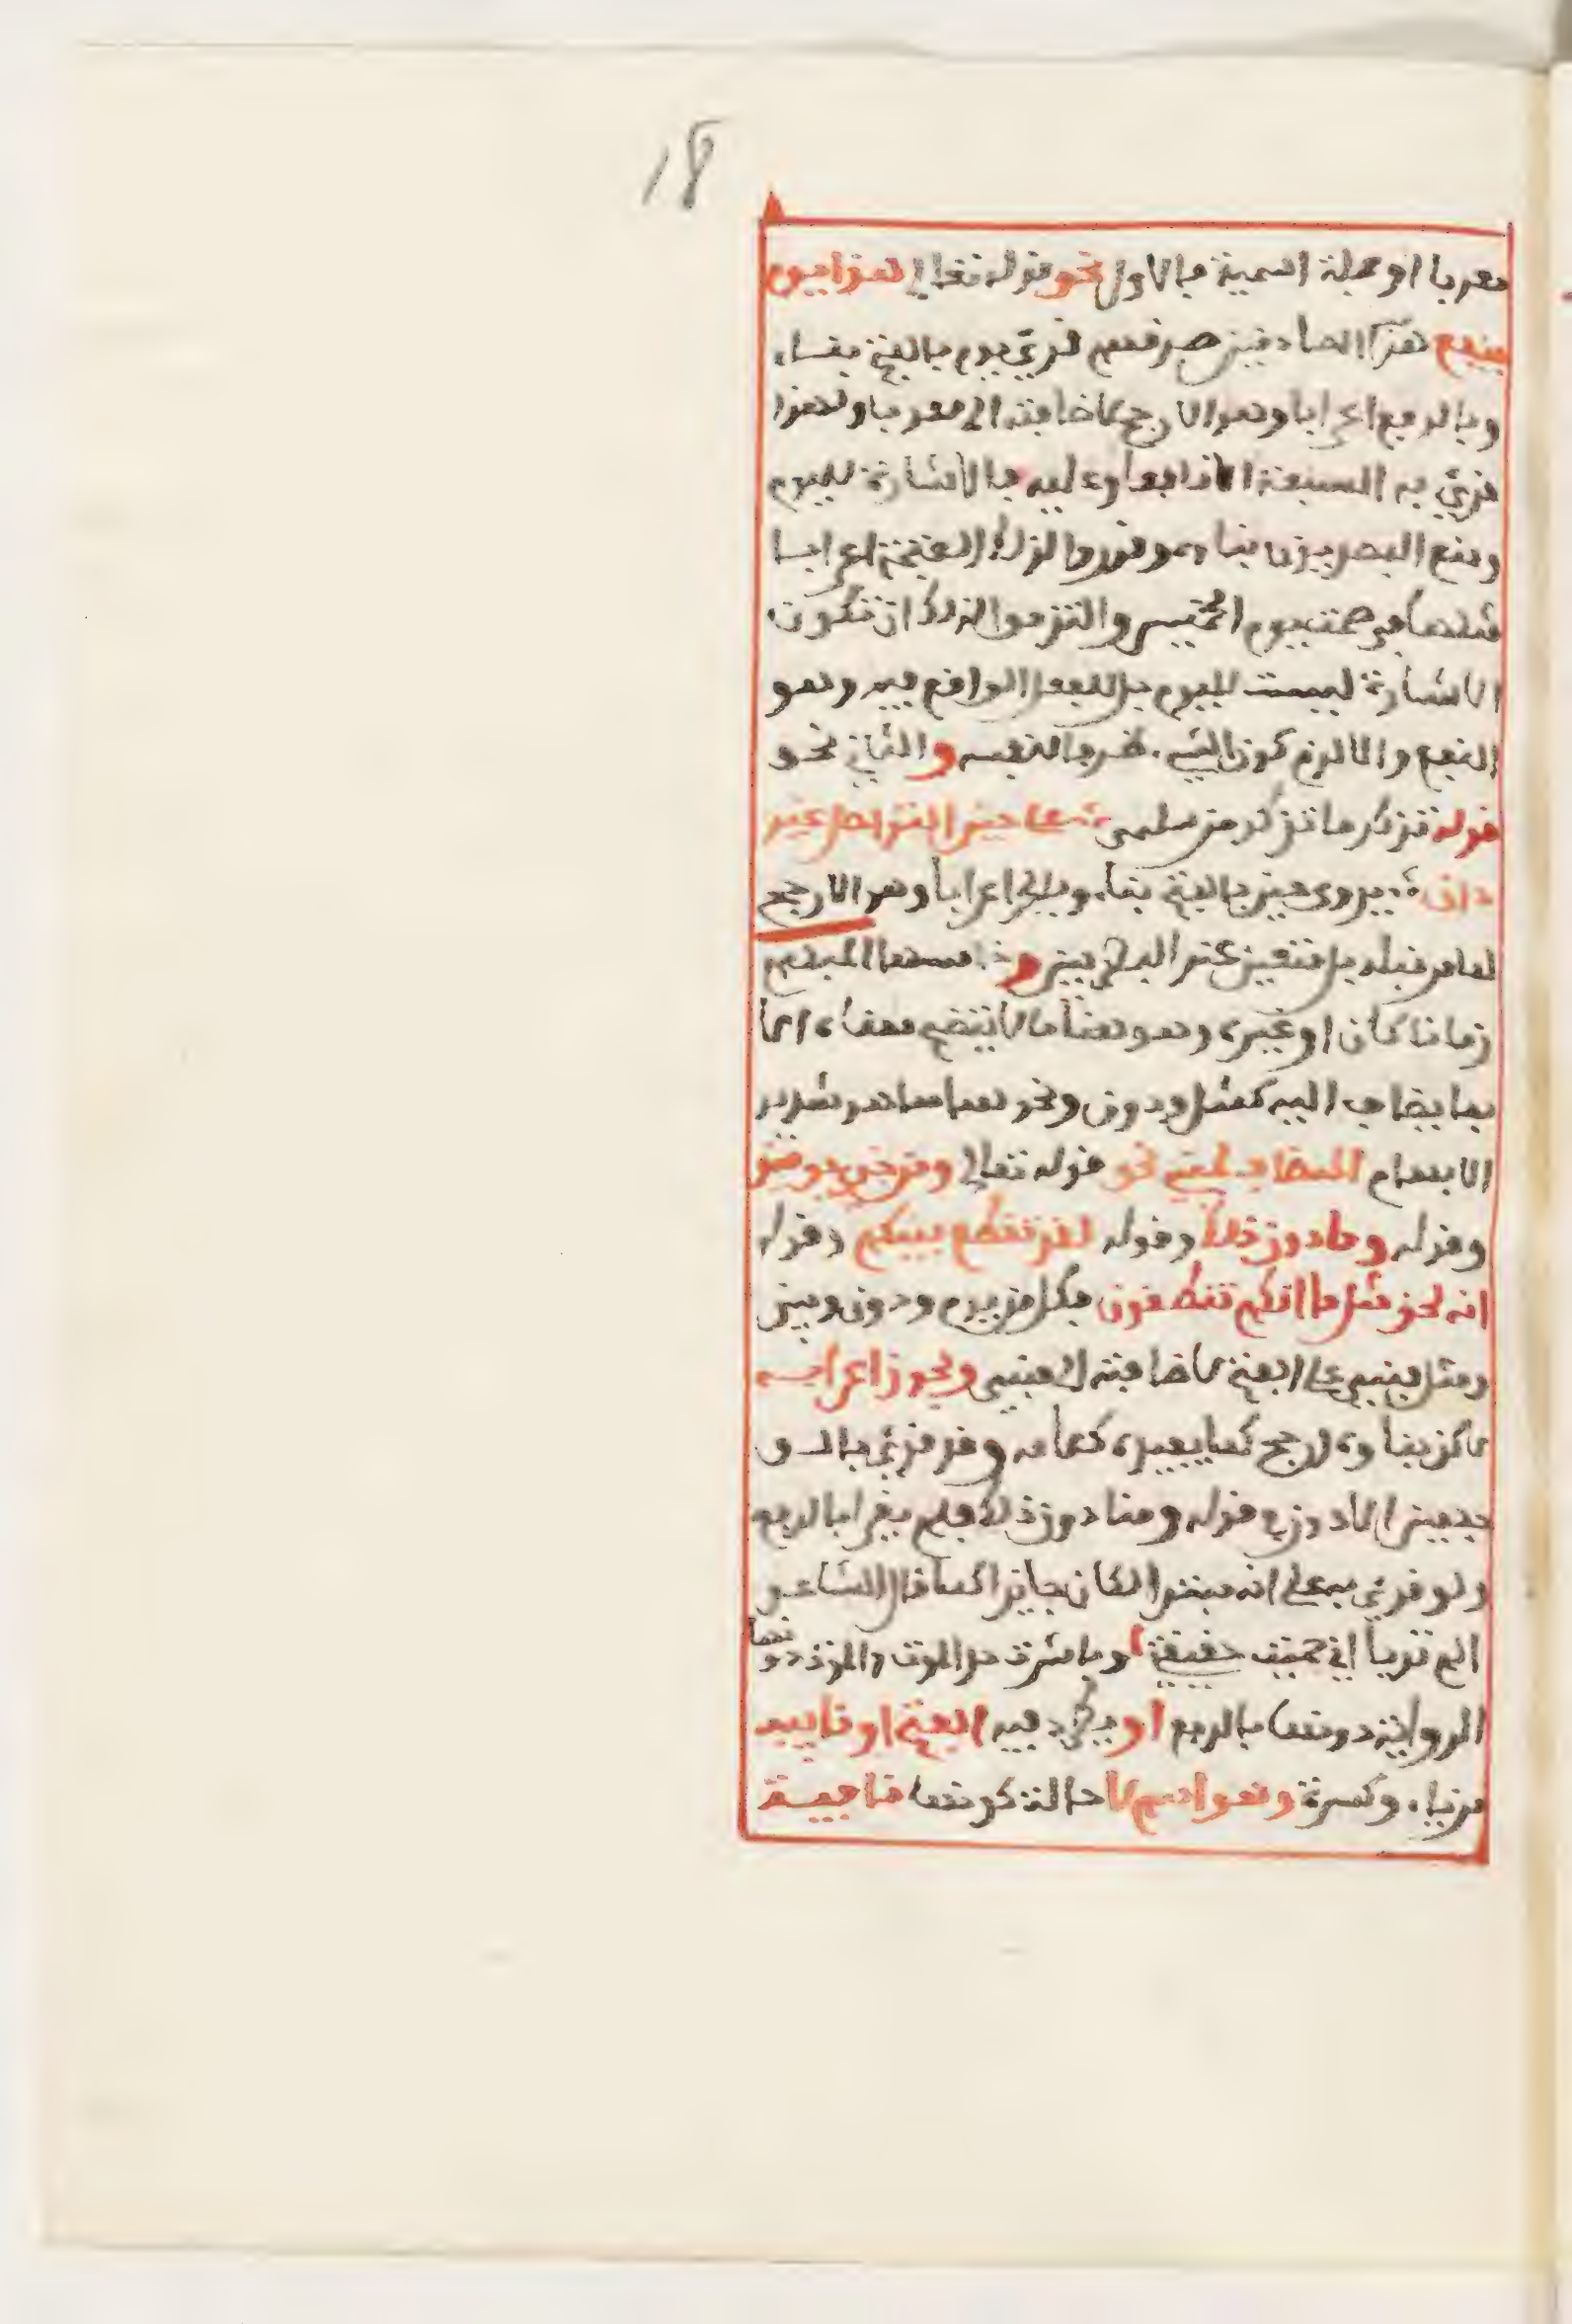 18
معربا او جملة اسمية فالاول نحو قوله تعالى هذا يوم
ينفع هذا الصادقين صدقهم قرئ يوم بالفتح بناء
وبالرفع اعرابا وهو الارجح لاضافته الى معرب ولهذا
قرئ به السبعة الا نافعا وعليه فالاشارة لليوم
ومنع البصريون بناءه وقدروا لذلك الفتحة اعرابا
مثلها في صمت يوم الخميس والتزموا لذلك ان تكون
الاشارة ليست لليوم بل للفعل الواقع فيه وهو
النفع والا لزم كون الشيء ظرفا لنفسه والثاني نحو
قوله تذكر ما تذكر من سليمى على حين التواصل غير
دان يروى حين بالفتح بناء وبالجر اعرابا وهو الارجح
لما مر قبله بل متعين عند البصريين و المبهم
زمانا كان او غيره وهو هنا ما لا يتضح معناه الا
بما يضاف اليه كمثل ودون ونحوهما مما هو شديد
الابهام المضاف لمبني نحو قوله تعالى ومن خزي يومئذ
وقوله وما دون ذلك وقوله لقد تقطع بينكم وقوله
انه لحق مثل ما انكم تنطقون فكل من يوم ودون وبين
ومثل مبني على الفتح لاضافته الى مبني ويجوز اعرابه
لاكن بناوه ارجح كما يفيده كلامه وقد قرئ بالـو
جهين الا دون في قوله ومنا دون ذلك فلم يقرا بالرفع
ولو قرئ به على انه مبتدا لكان جايزا كما قال الشاعر
الم تريا اني حميت حقيقتي وباشرت حد الموت والموت دونها
الرواية دونها بالرفع او فيه الفتح او نايبه
من ياء وكسرة وهو اسم لا حالة كونها نافية